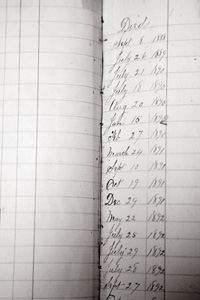 Died
Sept 8 1888
July 26 1889
July 21 1890
July 18 1890
Aug 20 1890
Jan 15
Feb 27 1891
March 24 1891
Sept 10 1891
Oct 19 1891
Dec 29 1891
May 22 1892
July 28 1892
July 29 1892
July 28 1892
Sept 27 1892